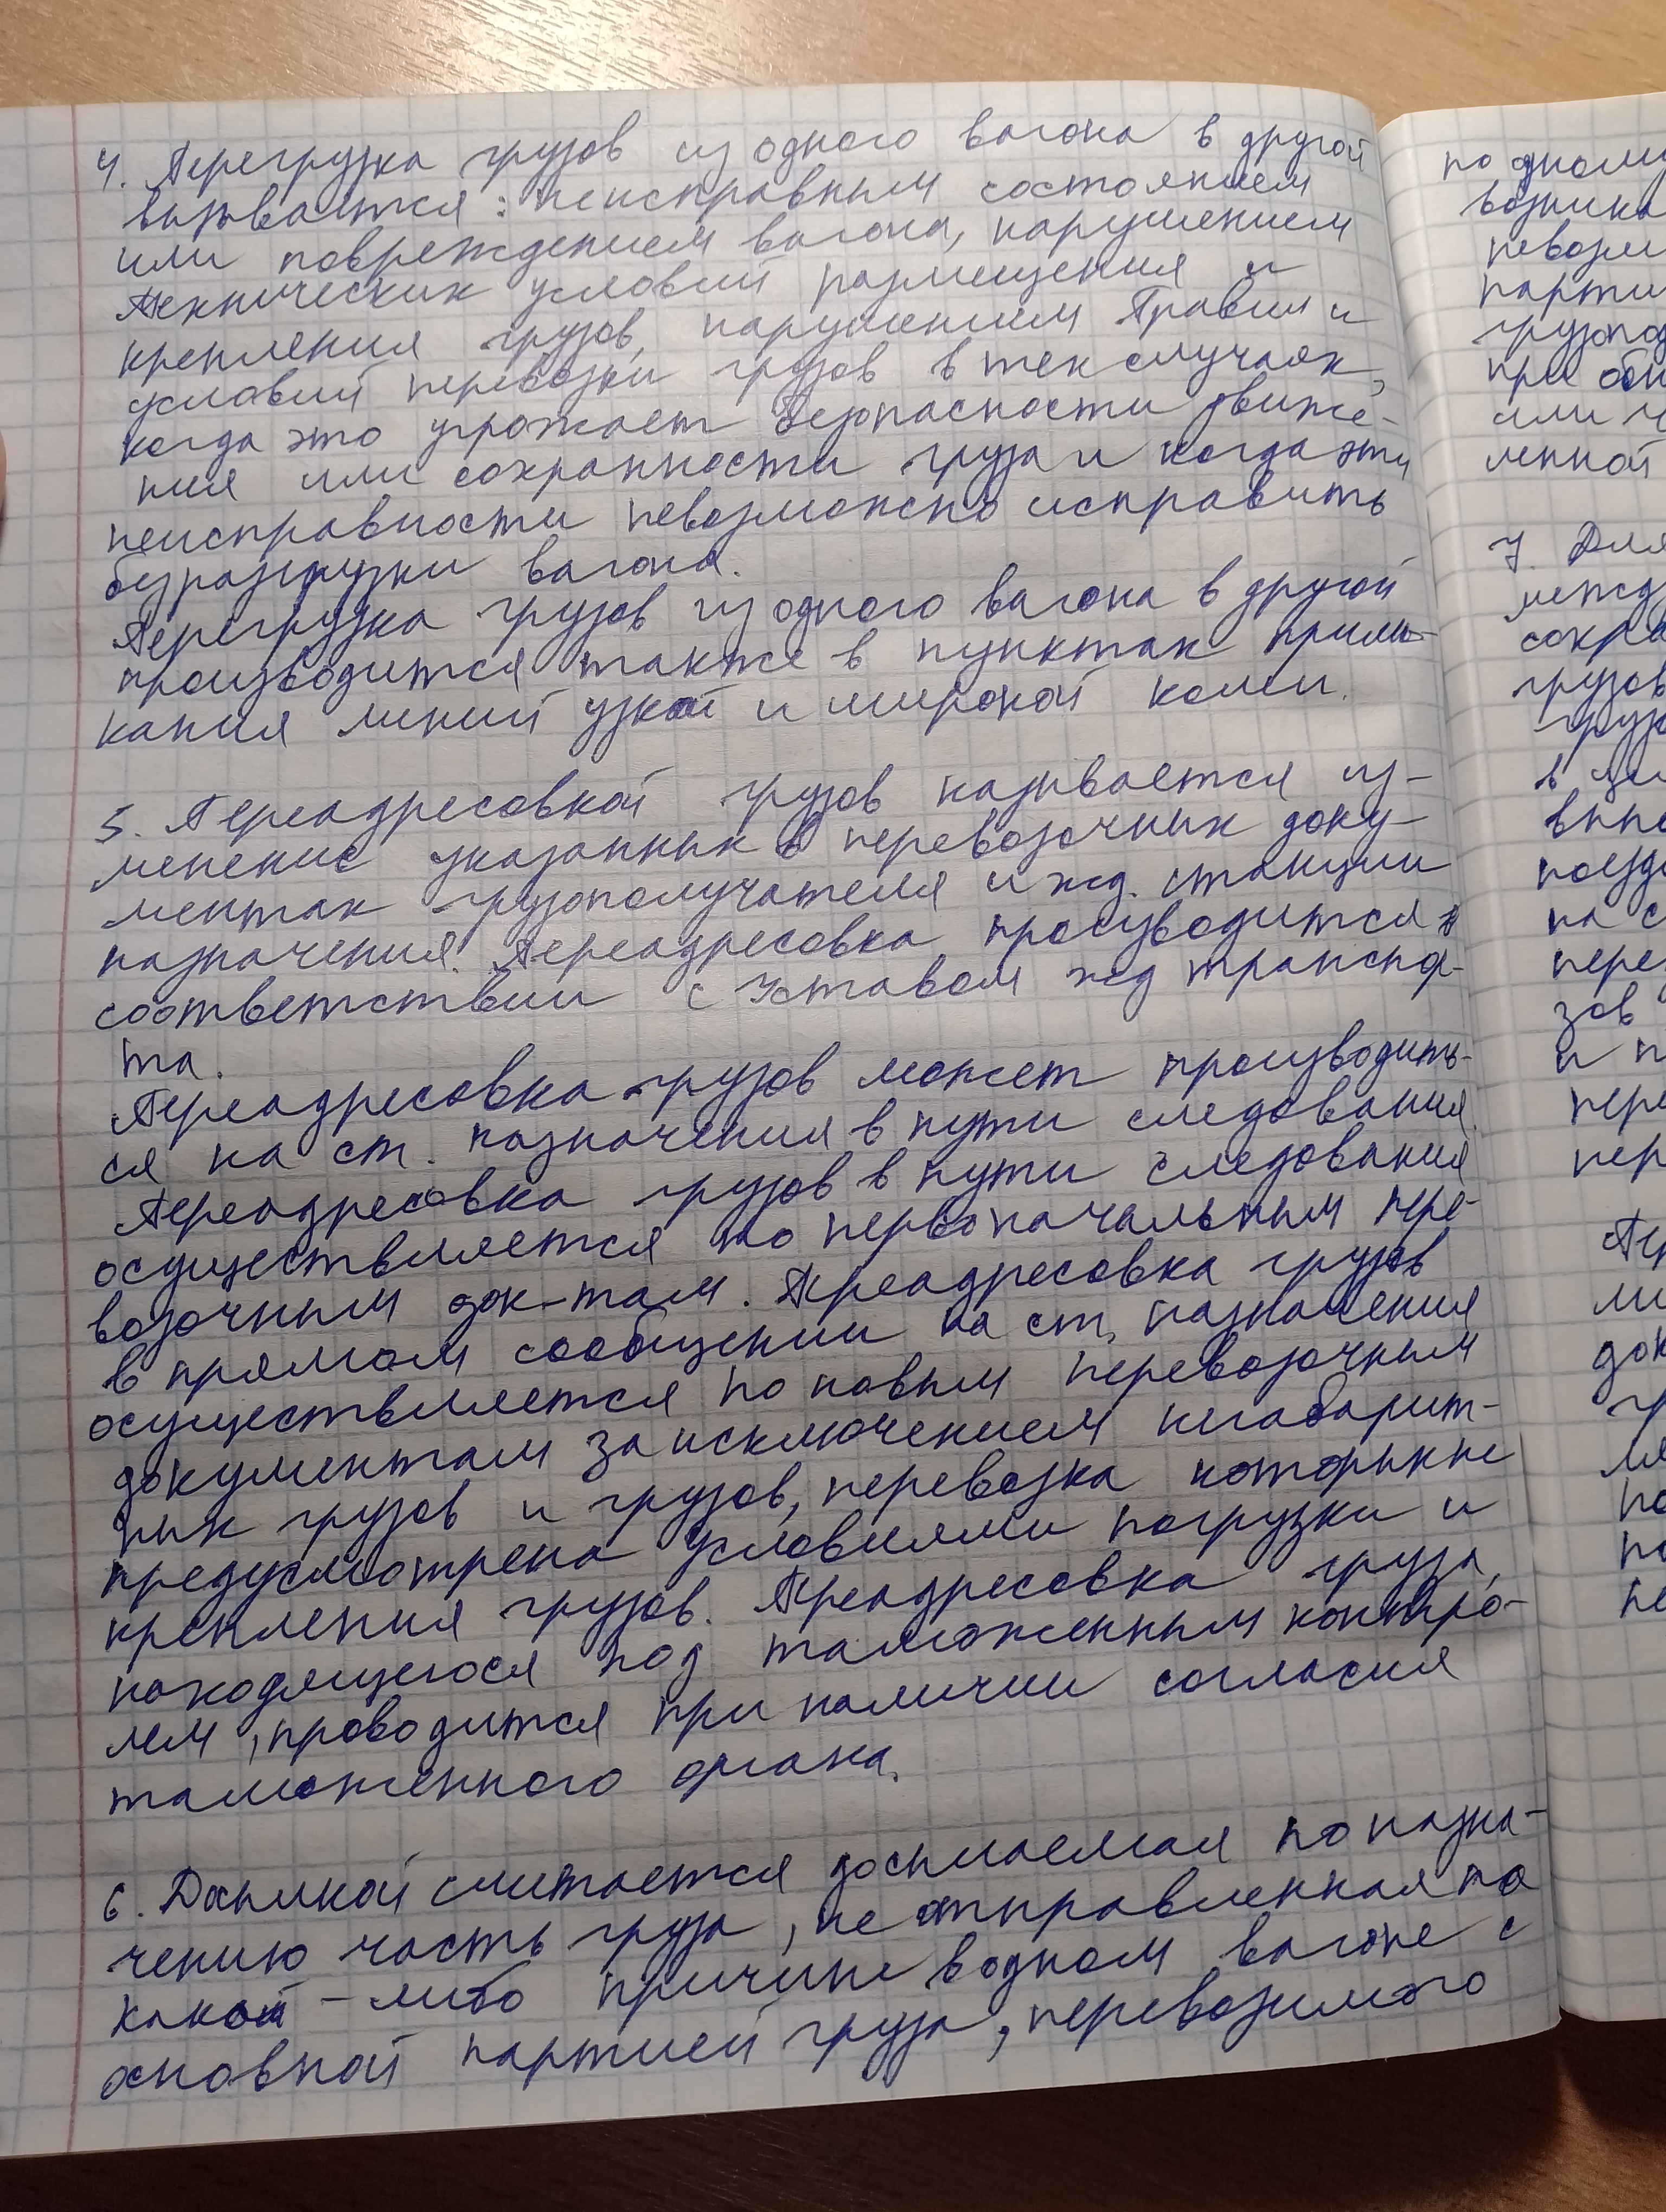 4. Перегрузка грузов из одного вагона в другой
вызывается: неисправным состоянием
или повреждением вагона, нарушением
технических условий размещения и
крепления грузов, нарушением Правил и
условий перевозки грузов в тех случаях,
когда это угрожает безопасности движе-
ния или сохранности груза и когда эти
неисправности невозможно исправить
без разгрузки вагона.
Перегрузка грузов из одного вагона в другой
производится также в пунктах примы-
кания линий узкой и широкой колеи.
5. Переадресовкой грузов называется из-
менение указанных в перевозочных доку-
ментах грузополучателя и жд. станции
назначения. Переадресовка производится в
соответствии с Уставом жд транспор-
та.
Переадресовка грузов может производить-
ся на ст. назначения в пути следования.
Переадресовка грузов в пути следования
осуществляется по первоначальным пере-
возочным док-там. Переадресовка грузов
в прямом сообщении на ст. назначения
осуществляется по новым перевозочным
документам за исключением негабарит-
ных грузов и грузов, перевозка которых не
предусмотрена условиями погрузки и
крепления грузов. Переадресовка груза,
находящегося под таможенным контро-
лем, проводится при наличии согласия
таможенного органа.
6. Досылкой считается досылаемая по назна-
чению часть груза, не отправленная по
какой-либо причине в одном вагоне с
основной партией груза, перевозимого
по одному
возника
невозм
парти
грузопод
при обн
или ч
ленной
7. Для
межд
сохра
грузов
груз
поезд
на с
пере
зов
и п
пере
пер
Пер
ли
док
гр
по
по
не